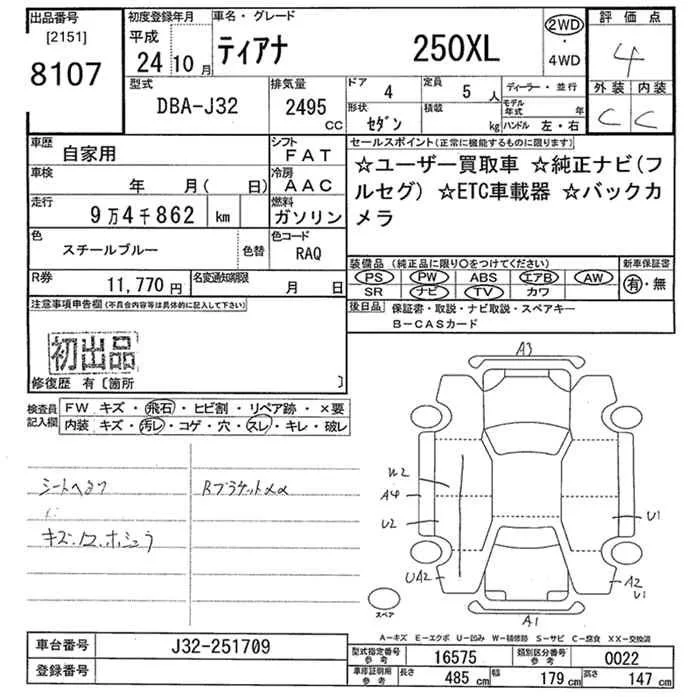 出品番号
[2151]
8107
初度登録年月
平成
24 10 月
車名・グレード
ティアナ 250XL
2WD
・
4WD
評価点
4
外装 内装
C C
型式
DBA-J32
排気量
2495
CC
ドア
4
定員
5 人
形状
セダン
積載
kg
ディーラー・並行
モデル年式 年
ハンドル 左・右
車歴
自家用
シフト
FAT
車検
年 月( 日)
冷房
AAC
走行
9万4千862 km
燃料
ガソリン
色
スチールブルー
色替
色コード
RAQ
R券
11,770円
名変通知期限
月 日
セールスポイント(正常に機能するものに限ります)
☆ユーザー買取車 ☆純正ナビ(フ
ルセグ) ☆ETC車載器 ☆バックカ
メラ
装備品 (純正品に限り○をつけてください)
PS PW ABS エアB AW
SR ナビ TV カワ
新車保証書
有・無
後日品 保証書・取説・ナビ取説・スペアキー
B-CASカード
注意事項申告欄(不具合内容等は具体的に記入して下さい)
初出品
修復歴 有〔箇所 〕
検査員記入欄
FW キズ・飛石・ヒビ割・リペア跡・×要
内装 キズ・汚レ・コゲ・穴・スレ・キレ・破レ
シートヘタリ
Rブラケットメα
A3
W2
A4
U2
UA2
U1
A2
U1
A1
スペア
A-キズ E-エクボ U-凹み W-補修跡 S-サビ C-腐食 XX-交換済
車台番号
J32-251709
登録番号
型式指定番号
参考
16575
類別区分番号
参考
0022
車庫証明用
参考
長さ
485 cm
幅
179 cm
高さ
147 cm